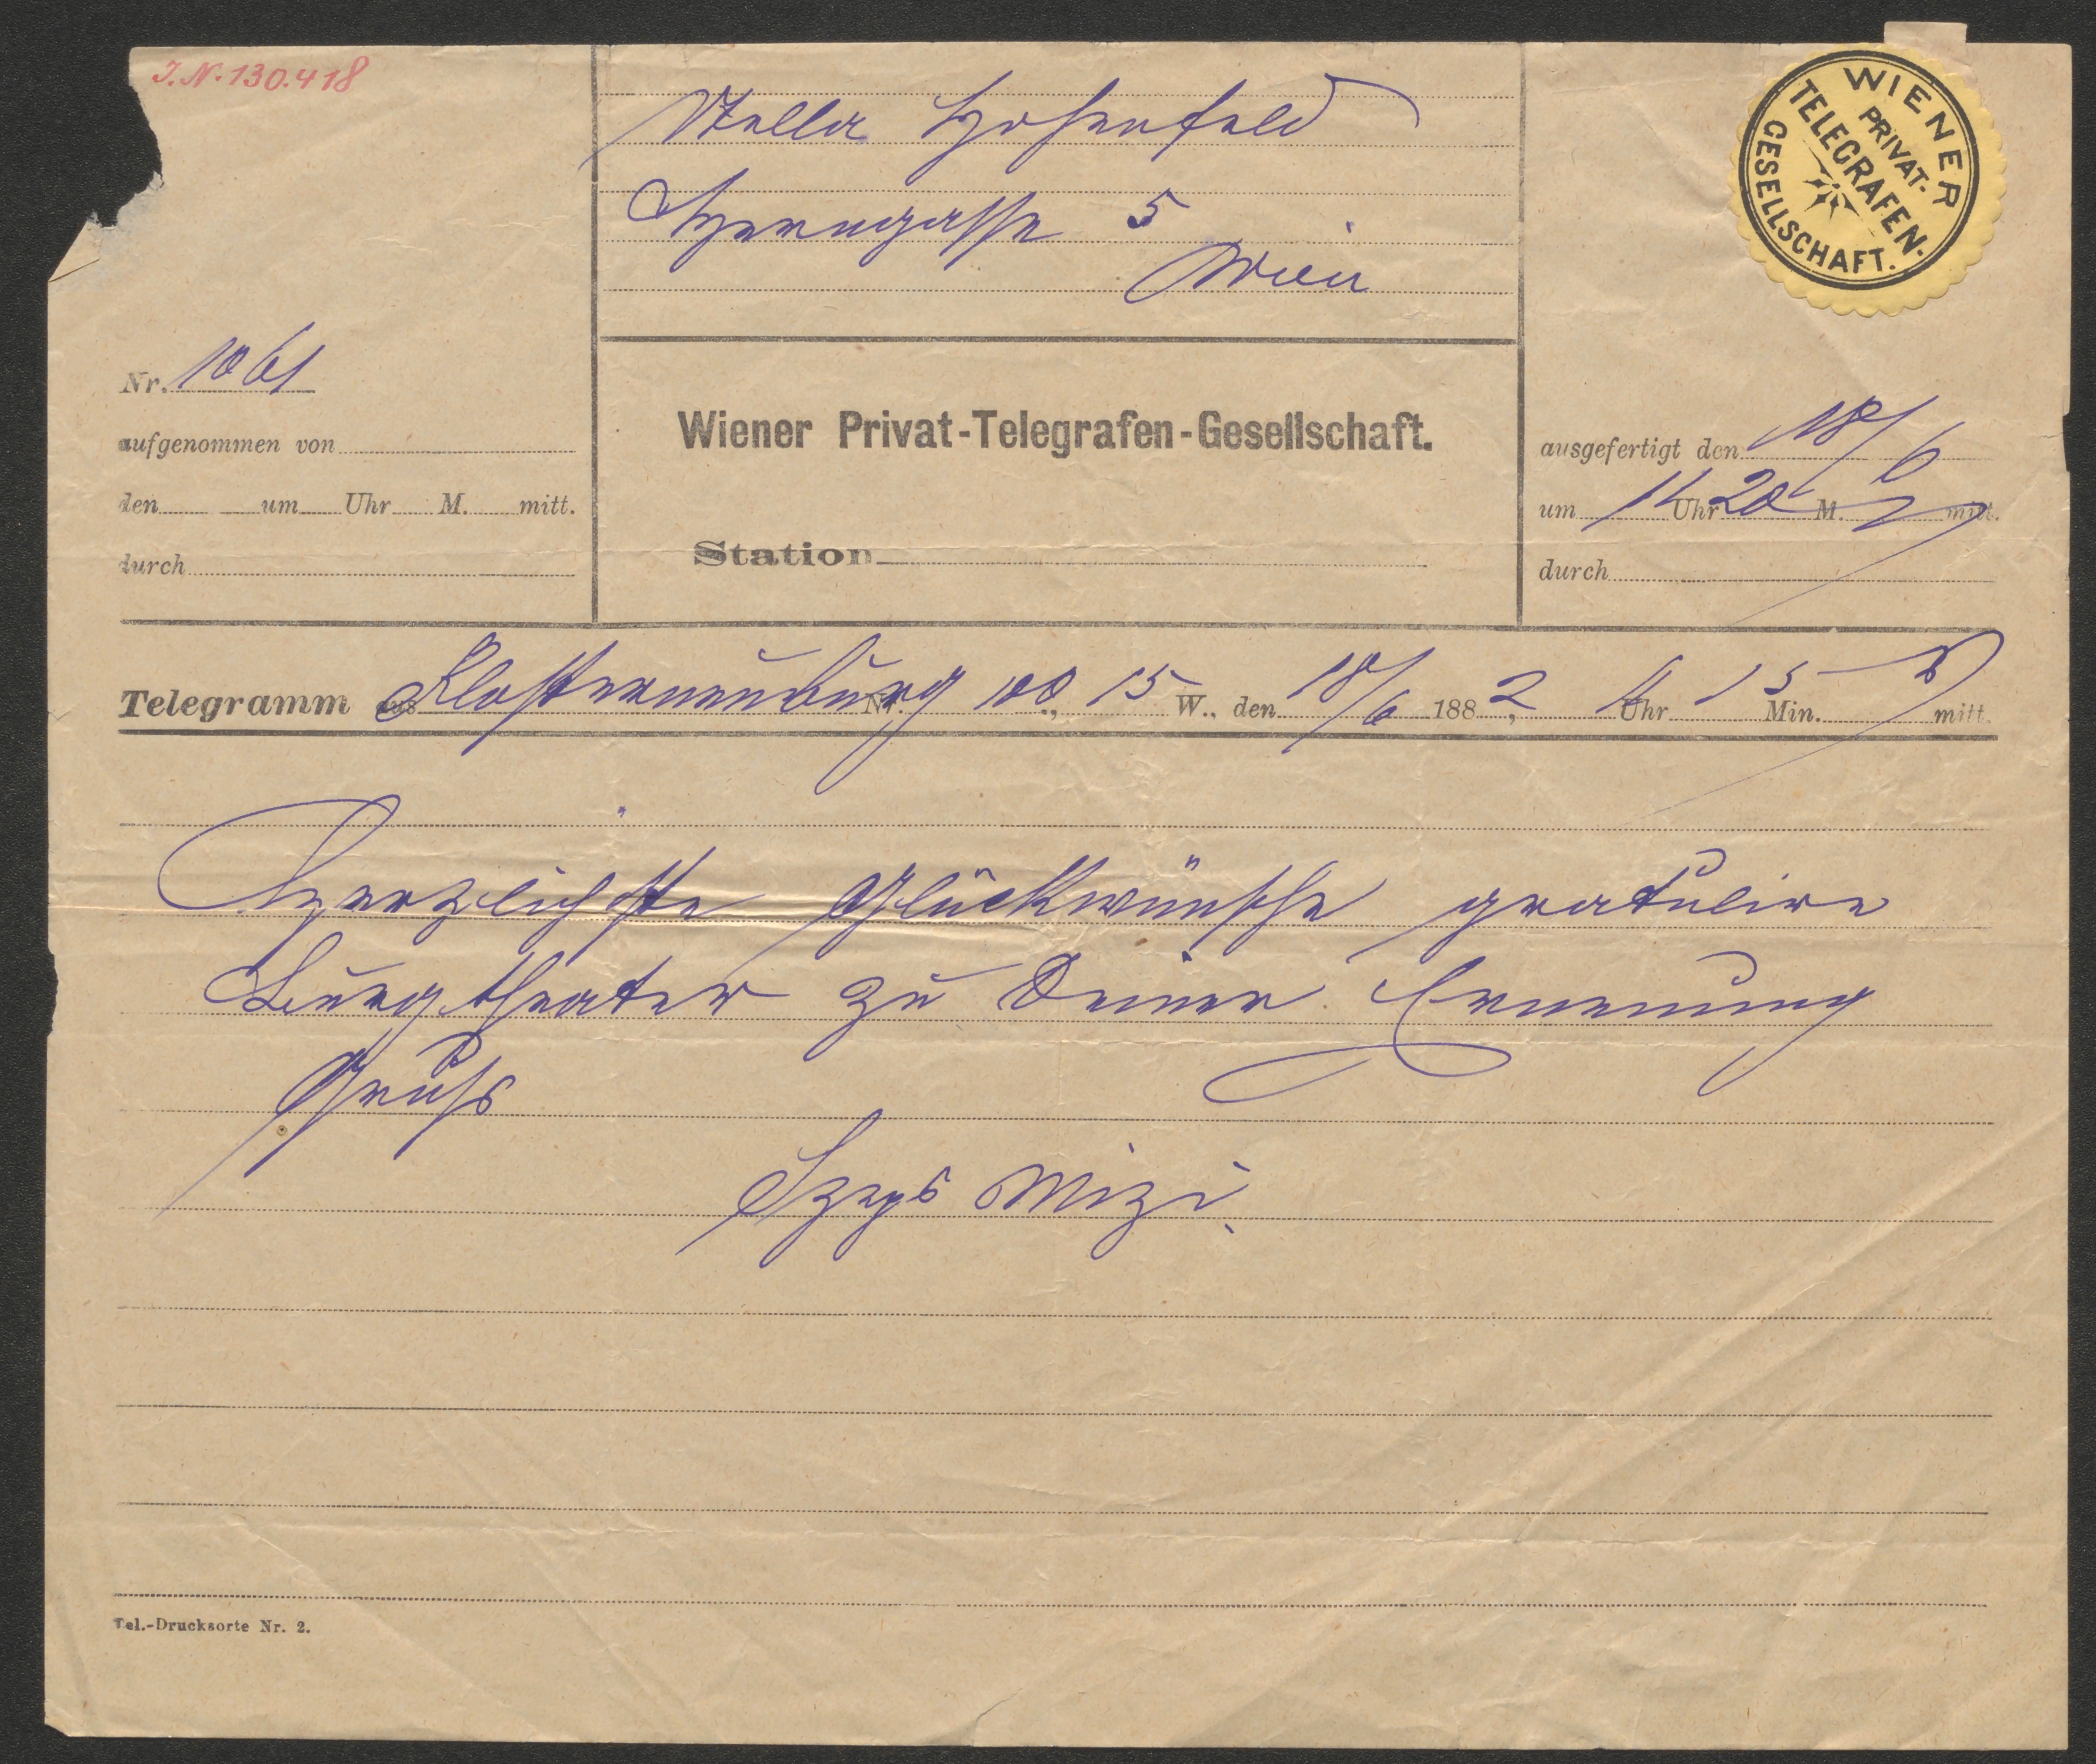 J.N. 130.418
Stella Hohenfeld
Herrengasse 5
Wien
WIENER
PRIVAT-
TELEGRAFEN-
GESELLSCHAFT.
Nr. 1061
aufgenommen von
den um Uhr M. mitt.
durch
Wiener Privat-Telegrafen-Gesellschaft.
Station
ausgefertigt den 18/6
um Uhr 20 M. mitt.
durch
Telegramm aus Klosterneuburg Nr. 100, 15 W., den 18/6 1882, Uhr 15 Min. mitt.
Herzlichste Glückwünsche gratulire
Burgtheater zu Deiner Ernennung
Gruß
Mizi.
Tel.-Drucksorte Nr. 2.